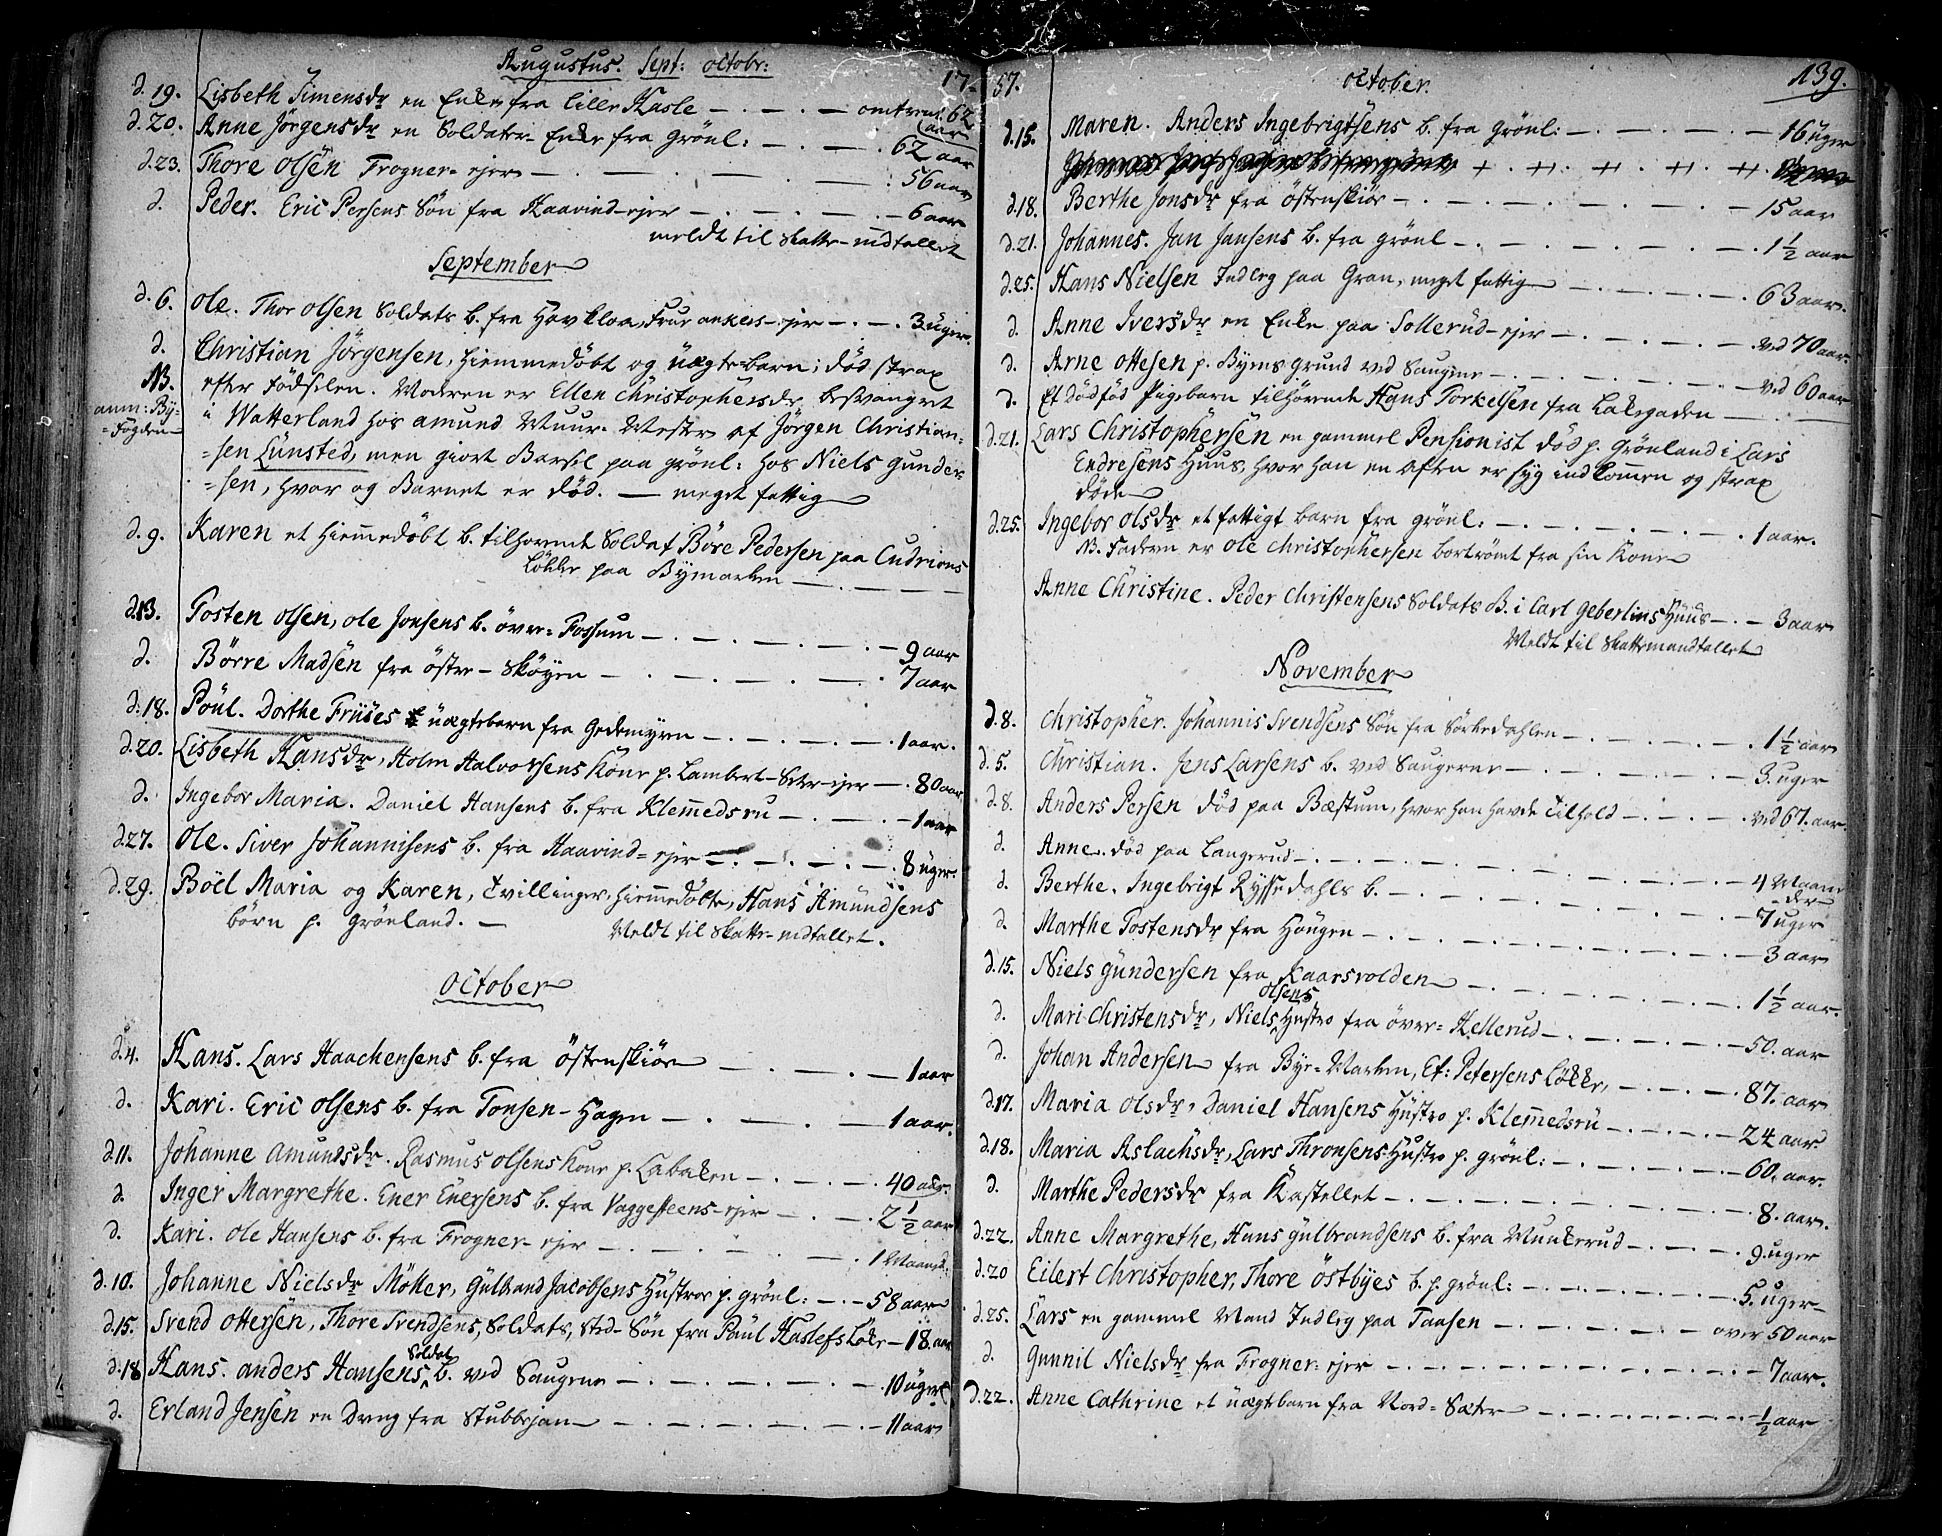 Augustus. Sept: octobr:
17
d. 19. Lisbeth Simensdr en Enke fra lille Hasle — omtrent 62 aar
d. 20. Anne Jörgensdr en Soldater-Enke fra Grönl: — 62 aar
d. 23. Thore Olsen Frogner-ejer — 56 aar
d. Peder. Eric Persens Sön fra Haavind-ejer — 6 aar
meldt til Skatte-mdtallet
September
d. 6. Ole. Thor Olsen Soldats b. fra — 3 uger.
d. Christian Jörgensen, hiemmedöbt og uægte barn; död strax
NB. efter Födselen. Moderen er Ellen Christophersdr, besvangret
anm: By= i Watterland hos Amund Muur. Mester af Jörgen Christian=
=Fogden =sen Lünsted, men giort Barsel paa Grönl: hos Niels Gunder=
=sen, hvor og Barnet er död. — meget fattig
d. 9. Karen et hiemmedöbt b. tilhörende Soldat Böre Pedersen paa Cudrions
Lökke paa Bymarken —
d. 13. Tosten Olsen, Ole Jonsens b. över=Fossum — 9 aar
d. Börre Madsen fra östre-Sköyen — 7 aar
d. 18. Poul. Dorthe Friises uægte barn fra Gedemyren — 1 aar.
d. 20. Lisbeth Hansdr, Holm Halvorsens Kone p. Lambert-Seter-ejer — 80 aar
d. Ingebor Maria. Daniel Hansens b. fra Klemmedsru — 1 aar
d. 27. Ole. Siver Johannisens b. fra Haavind=ejer — 8 uger.
d. 29. Böel Maria og Karen, Tvillinger, hiemmedöbte, Hans Amundsens
börn p. Grönland. — Meldt til Skatte-mdtallet.
October
d. 4. Hans. Lars Haachensens b. fra östenskiör — 1 aar
d. Kari. Eric Olsens b. fra Tonsen-Hagen — 1 aar.
d. 11. Johanne Amundsdr. Rasmus Olsens Kone p. Labaken — 40 aar.
d. Inger Margrethe. Ener Enersens b. fra Vaggesteens-ejer — 2 1/2 aar
d. Kari. Ole Hansens b. fra Frogner-ejer — 1 Maaned.
d. 10. Johanne Nielsdr Möller, Gulbrand Jacobsens Hüstroe p. Grönl: — 58 aar
d. 15. Svend Ottersen, Thore Svendsens, Soldats, Sted-Sön fra Paul Haslefs Lökke — 18. aar
d. 18 Hans. Anders Hansens Soldat b. ved Saugene — 10 uger.
d. Erland Jensen en Dreng fra Stubberjan — 11 aar
57.
October.
139.
d. 15. Maren. Anders Ingebrigtsens b. fra Grönl: — 16 uger
d. 18. Berthe Jonsdr fra östenskiör — 15 aar
d. 21. Johannes. Jan Jansens b. fra Grönl — 1 1/2 aar
d. 25. Hans Nielsen Inderg paa Gran, meget fattig — 63 aar.
d. Anne Iversdr en Enke paa Sollerud-ejer — ved 70 aar.
d. Arne Ottesen p. Byens grund ved Saugene — ved 60 aar
d. Et dödfödt Pigebarn tilhörende Hans Torkelsen fra Laksgaden —
d. 21. Lars Christophersen en gammel Pensionist död p. Grönland i Lars
Endresens Huus, hvor han en Aften er syg indkommen og strax
döde
d. 25. Ingebor Olsdr et fattigt barn fra Grönl: — 1 aar.
NB. Faderen er Ole Christophersen bortrömt fra sin Kone
Anne Christine. Peder Christensens Soldats B. i Carl Geberlins Huus — 3 aar
Meldt til Skattemandtallet
November
d. 8. Christopher. Johannis Svendsens Sön fra Sörkedahlen — 1 1/2 aar
d. 5. Christian. Jens Larsens b. ved Saugerne — 3. uger
d. 8. Anders Persen död paa Bæstum, hvor han havde Tilhold — ved 67. aar.
d. Anne. död paa Langerud — 4 Maane=
=der
d. Berthe. Ingebrigt Ryssedahls b. — 7 uger
d. Marthe Tostensdr fra Höugen — 3 aar
d. 15. Niels Gundersen fra Kaarsvolden — 1 1/2 aar.
d. Mari Christensdr, Niels Olsens Hustro fra över=Hellerud — 50. aar
d. Johan Andersen fra Bye-Marken, Et: Petersens Lökke, — 87. aar
d. 17. Maria Olsdr, Daniel Hansens Hüstro p. Klemmedsrü — 24 aar
d. 18. Maria Aslachsdr, Lars Thronsens Hustro p. Grönl: — 60. aar.
d. Marthe Pedersdr fra Kastellet — 8. aar.
d. 22. Anne Margrethe, Hans Gulbrandsens b. fra Munkerud — 9. uger
d. 20 Eilert Christopher, Thore Östbyes b. p. Grönl: — 5. uger
d. 25. Lars en gammel Mand Inderg paa Taasen — över 50 aar
d. Gunnil Nielsdr fra Frogner-ejer — 7 aar.
d. 22. Anne Cathrine et uægte barn fra Nord=Sæter — 1/2 aar